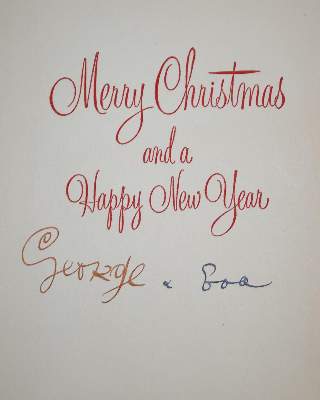 Merry Christmas
and a
Happy New Year
George & Eoa